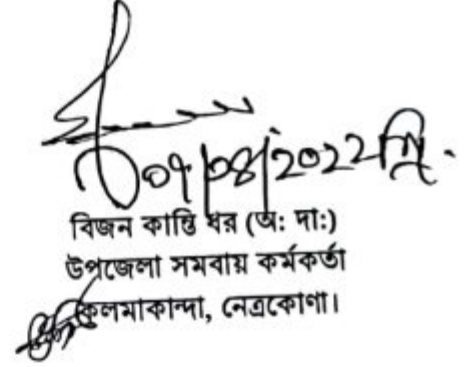 ০৭/০৪/২০২২খ্রি.
বিজন কান্তি ধর (অ: দা:)
উপজেলা সমবায় কর্মকর্তা
কলমাকান্দা, নেত্রকোণা।